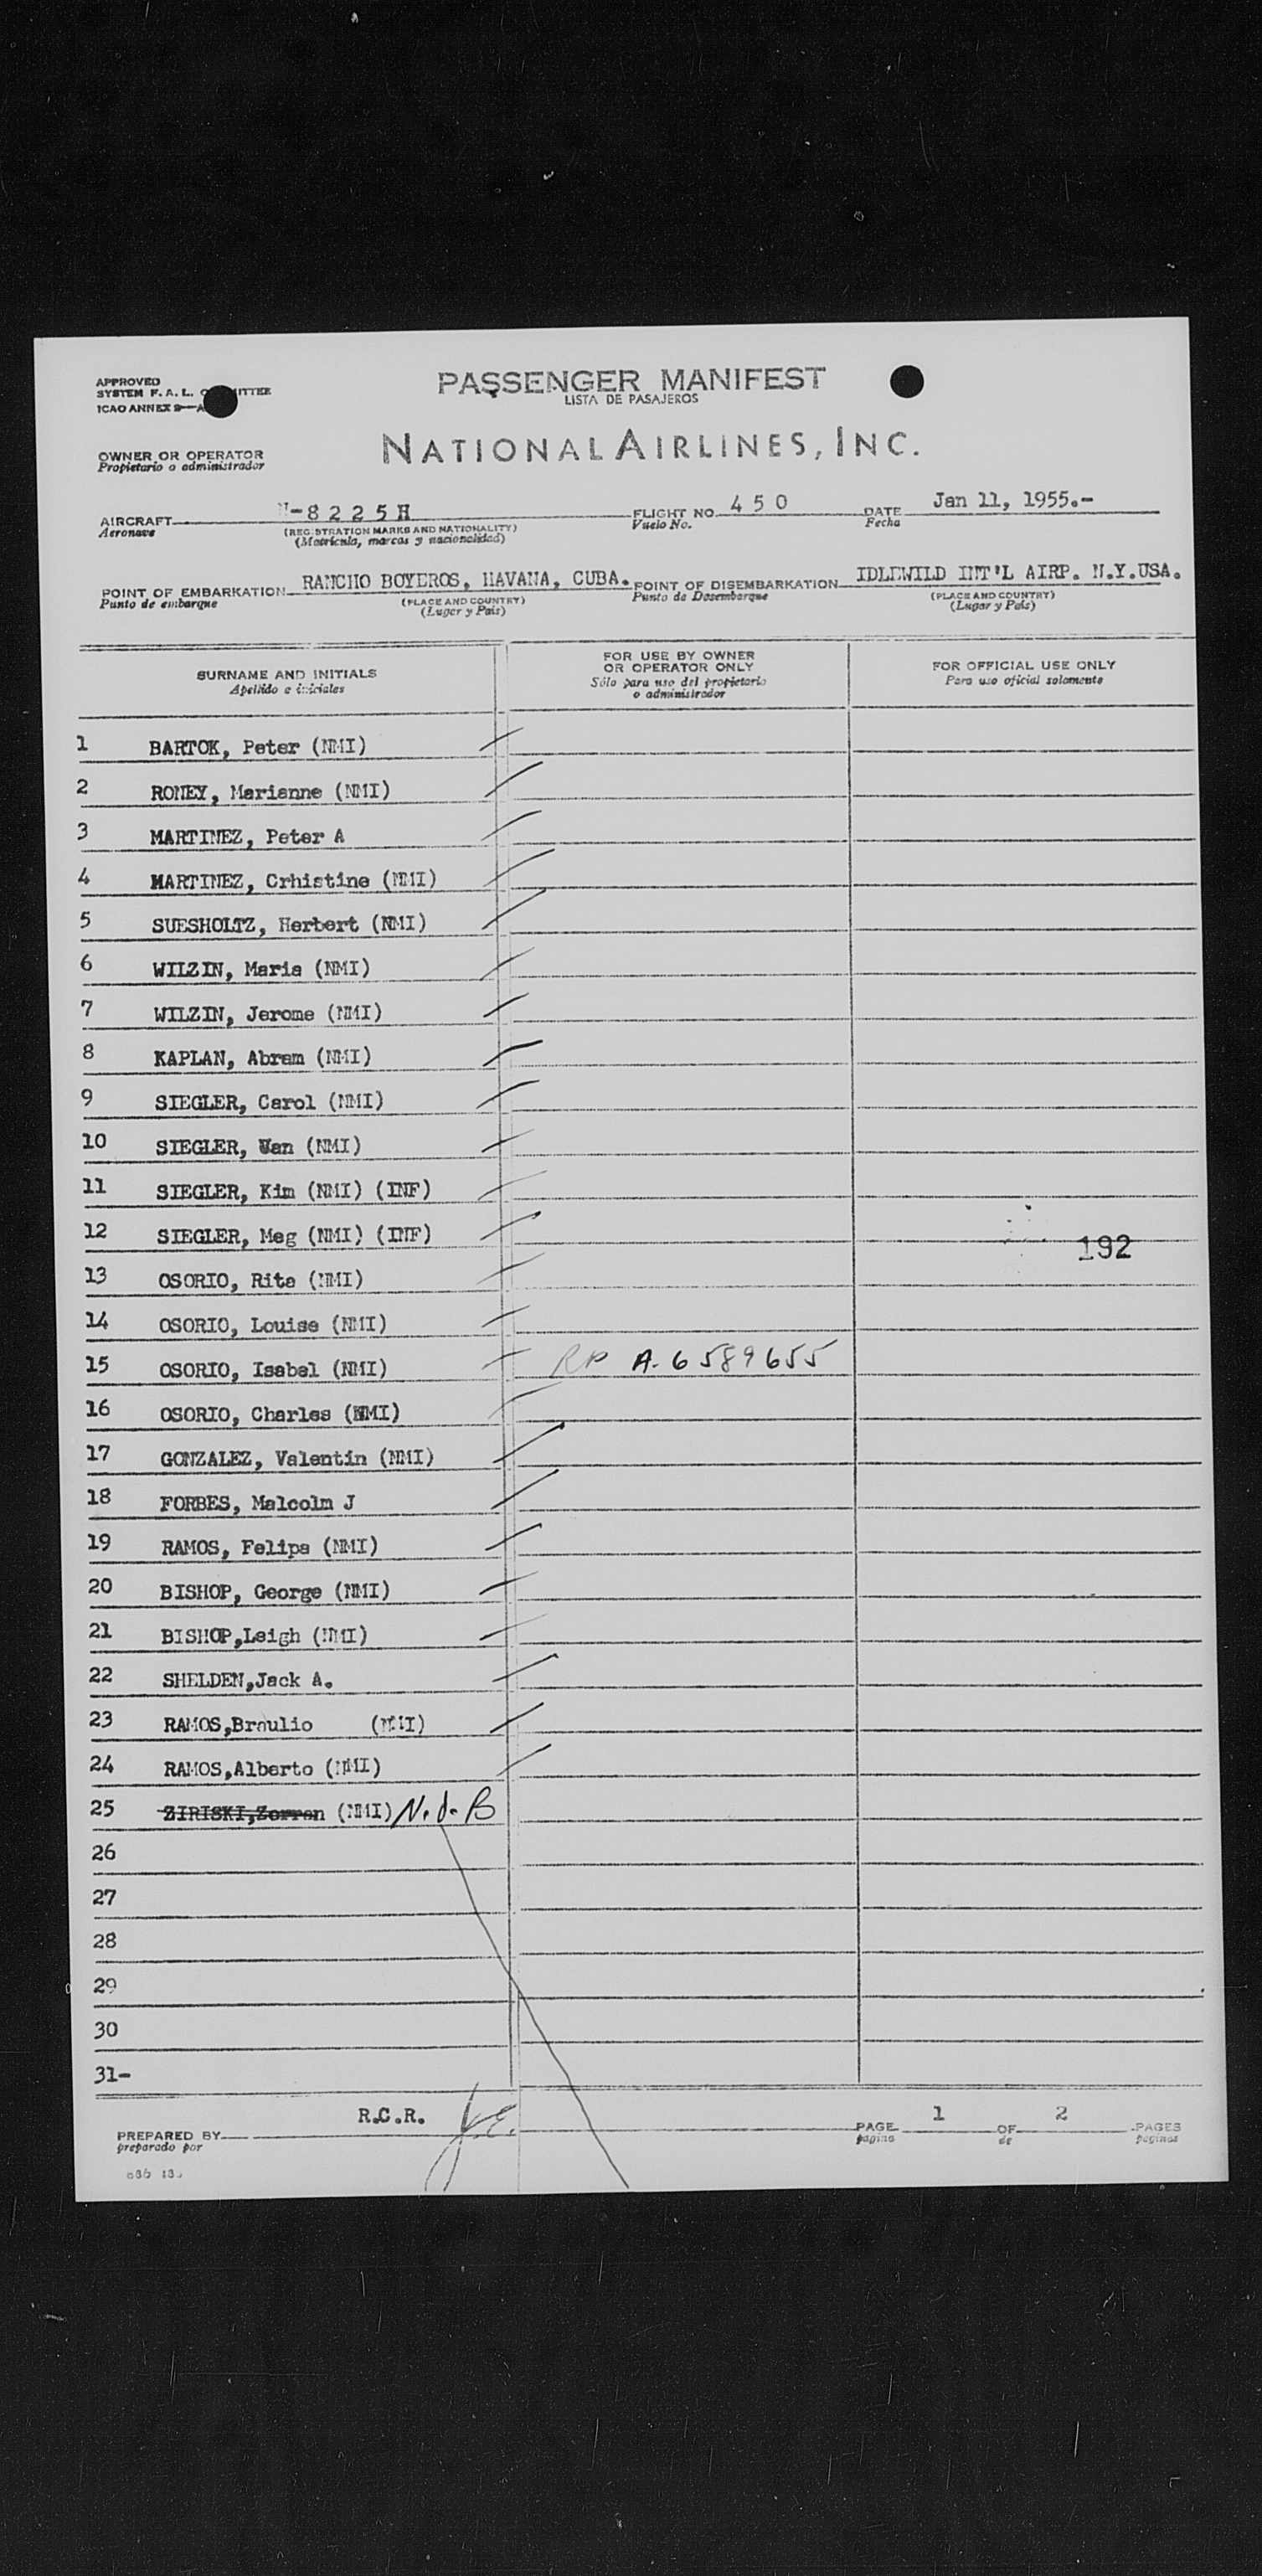 APPROVED
SYSTEM F. A. L.
ICAO ANNEX 9—A
PASSENGER MANIFEST
LISTA DE PASAJEROS
OWNER OR OPERATOR
Propietario o administrador
NATIONAL AIRLINES, INC.
AIRCRAFT N-8225H FLIGHT NO. 450 DATE Jan 11, 1955.-
Aeronave (REGISTRATION MARKS AND NATIONALITY) Vuelo No. Fecha
(Matrícula, marcas y nacionalidad)
POINT OF EMBARKATION RANCHO BOYEROS, HAVANA, CUBA. POINT OF DISEMBARKATION IDLEWILD INT'L AIRP. N.Y.USA.
Punto de embarque (PLACE AND COUNTRY) Punto de Desembarque (PLACE AND COUNTRY)
(Lugar y País) (Lugar y País)
SURNAME AND INITIALS
Apellido e iniciales
FOR USE BY OWNER
OR OPERATOR ONLY
Sólo para uso del propietario
o administrador
FOR OFFICIAL USE ONLY
Para uso oficial solamente
1 BARTOK, Peter (NMI)
2 RONEY, Marianne (NMI)
3 MARTINEZ, Peter A
4 MARTINEZ, Crhistine (NMI)
5 SUESHOLTZ, Herbert (NMI)
6 WILZIN, Maria (NMI)
7 WILZIN, Jerome (NMI)
8 KAPLAN, Abram (NMI)
9 SIEGLER, Carol (NMI)
10 SIEGLER, Van (NMI)
11 SIEGLER, Kim (NMI) (INF)
12 SIEGLER, Meg (NMI) (INF)
192
13 OSORIO, Rita (NMI)
14 OSORIO, Louise (NMI)
15 OSORIO, Isabel (NMI) RP A-6589655
16 OSORIO, Charles (NMI)
17 GONZALEZ, Valentin (NMI)
18 FORBES, Malcolm J
19 RAMOS, Felipe (NMI)
20 BISHOP, George (NMI)
21 BISHOP,Leigh (NMI)
22 SHELDEN,Jack A.
23 RAMOS,Braulio (NMI)
24 RAMOS,Alberto (NMI)
25 ZIRISKI,Zorran (NMI) N.d.B
26
27
28
29
30
31-
PREPARED BY R.C.R. J.E. PAGE 1 OF 2 PAGES
preparado por página de páginas